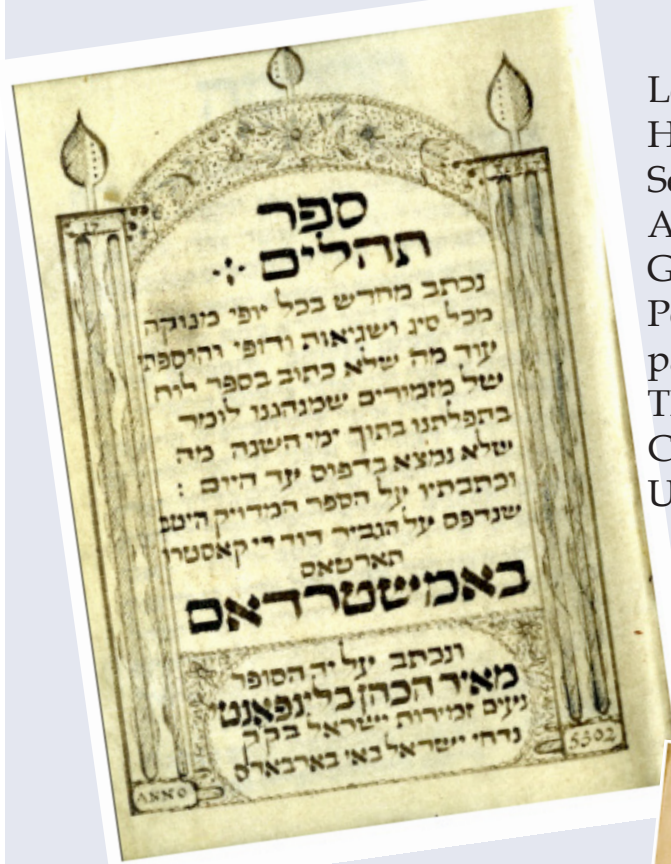 ספר
תהלים
נכתב מחדש בכל יופי מנוקה
מכל סיג ושגיאות ודופי והוספתי
עוד מה שלא כתוב בספר לוח
של מזמורים שמנהגנו לומר
בתפלתנו בתוך ימי השנה מה
שלא נמצא בדפוס עד היום :
וכתבתיו על הספר המדויק היטב
שנדפס על הגביר דוד די קאסטרו
תארטאס
באמשטרדאם
ונכתב על יד הסופר
מאיר הכהן בלינפאנטי
נעים זמירות ישראל בקק
נדחי ישראל באי בארבאדס
ANNO
5302
L
H
S
A
G
P
p
T
C
U